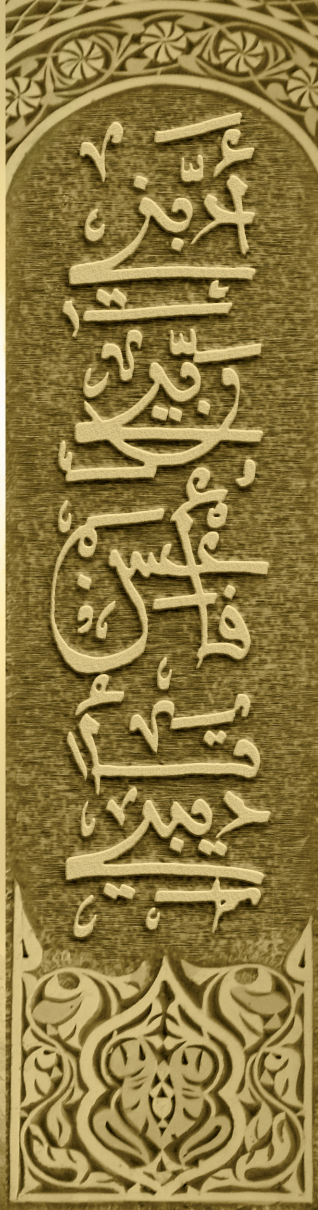 أَدَّبَنِي رَبِّي فَأَحْسَنَ تَأْدِيبِي